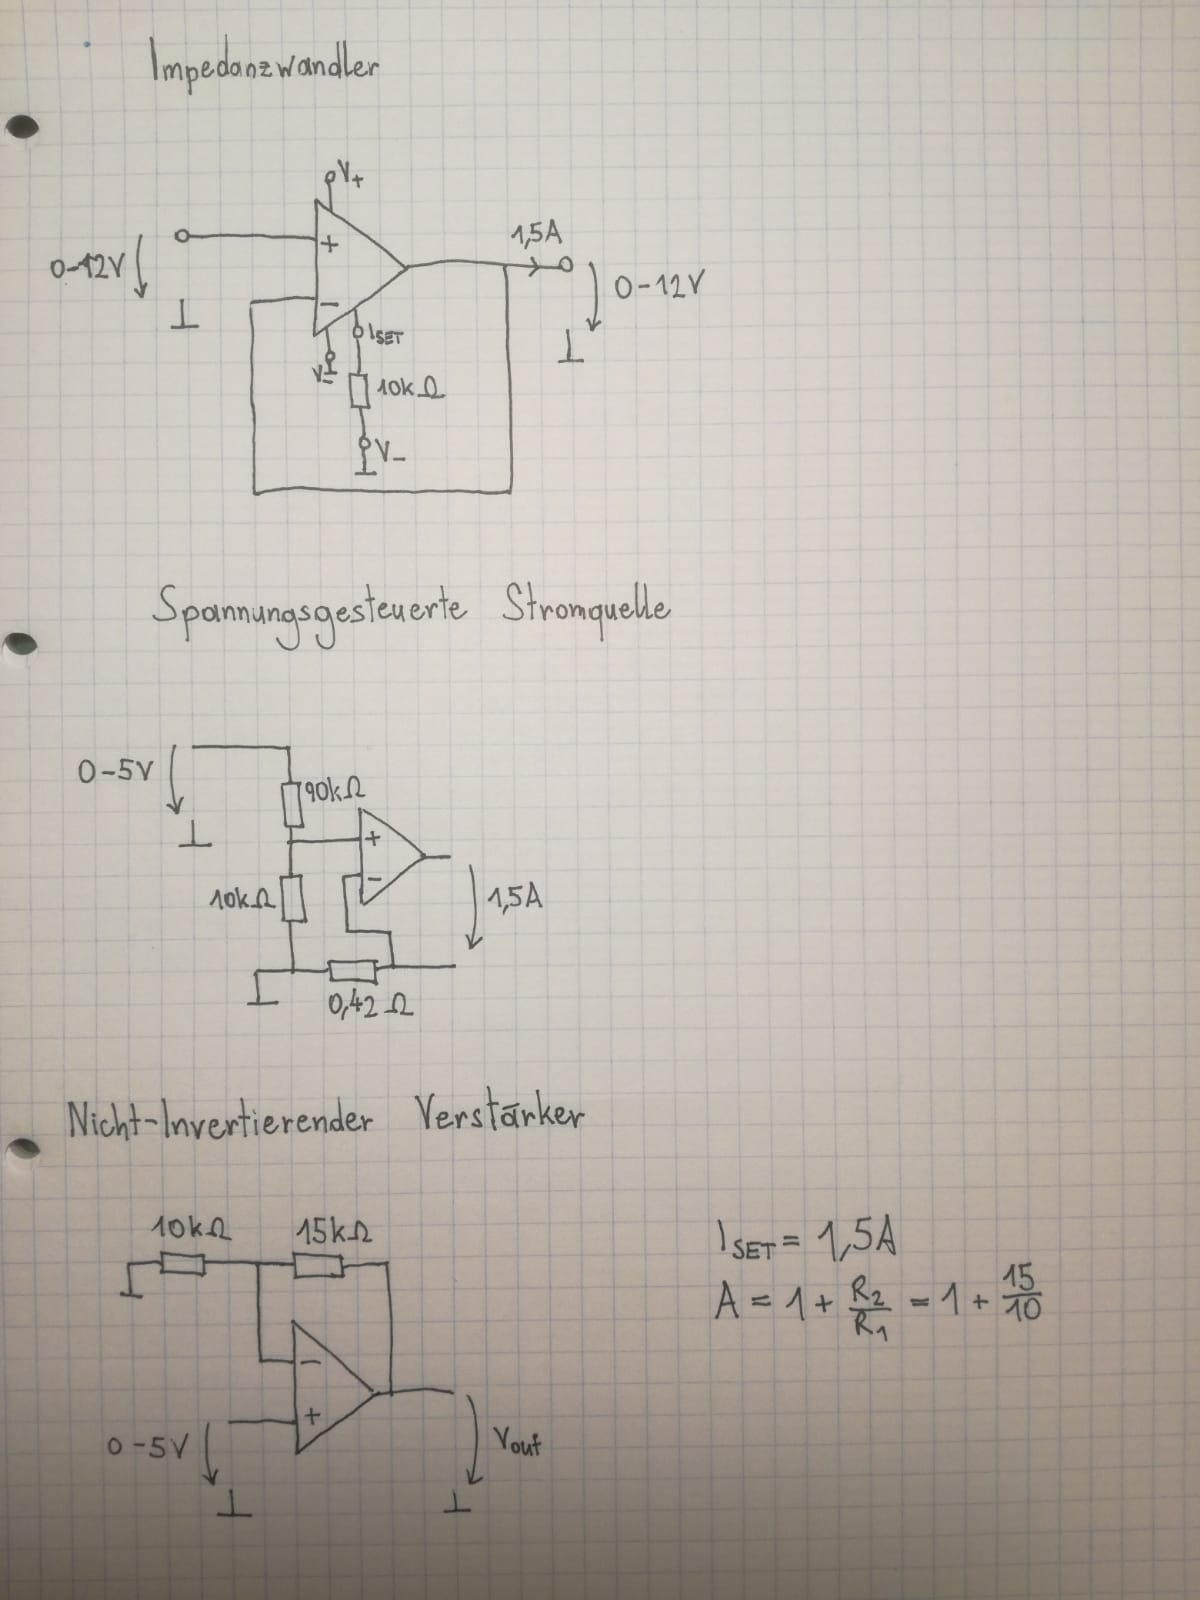 Impedanzwandler
V+
1,5A
0-12V
+
0-12V
-
ISET
V-
10kΩ
V-
Spannungsgesteuerte Stromquelle
0-5V
90kΩ
+
-
10kΩ
1,5A
0,42Ω
Nicht-Invertierender Verstärker
10kΩ 15kΩ
ISET = 1,5A
A = 1 + R2/R1 = 1 + 15/10
-
+
0-5V
Vout